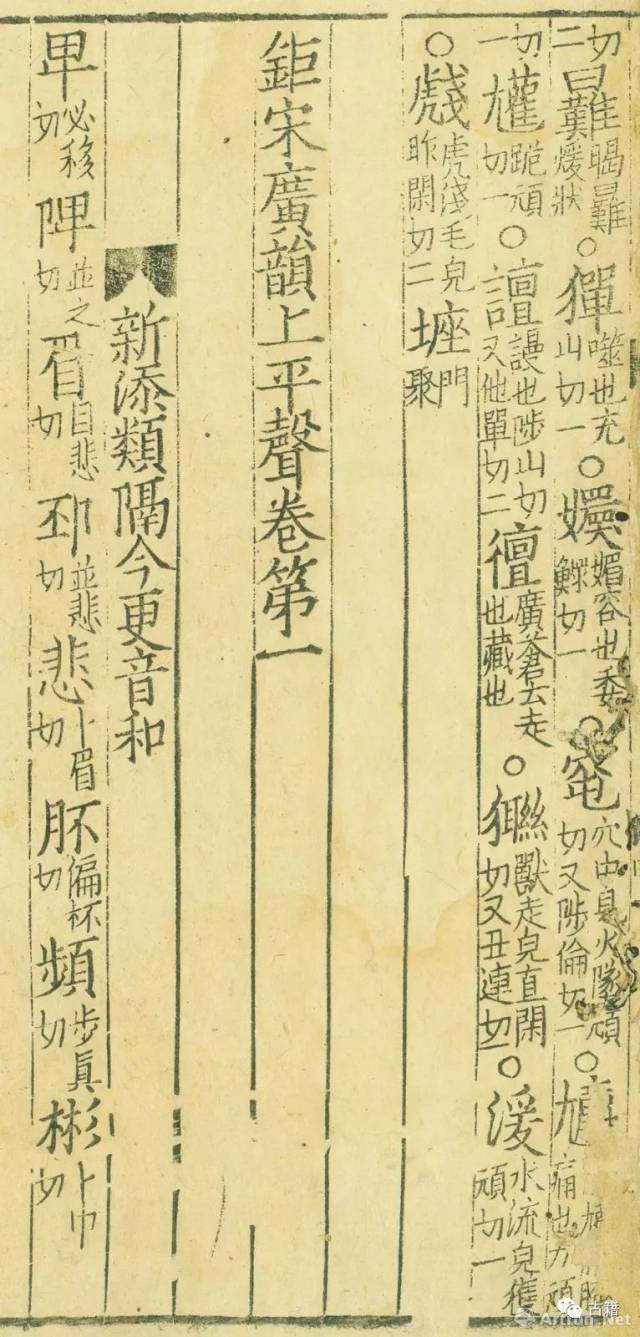 切二㬮暍㬮煖狀○㺗噬也充山切一○㜵媚容也委鰥切一○窀穴中見火墜頑切又陟倫切一○
切一㩲跪頑切一○譠謾也陟山切又他單切二䢐廣蒼云走也藏也○獑獸走皃直閑切又丑連切一○湲水流皃獲頑切一
○虥虎淺毛皃昨閑切二㘸門聚
鉅宋廣韻上平聲卷第一
新添類隔今更音和
卑必移切陴並之切眉目悲切邳並悲切悲卜眉切胚偏杯切頻步真切彬卜巾切
古籍
Artron.Net